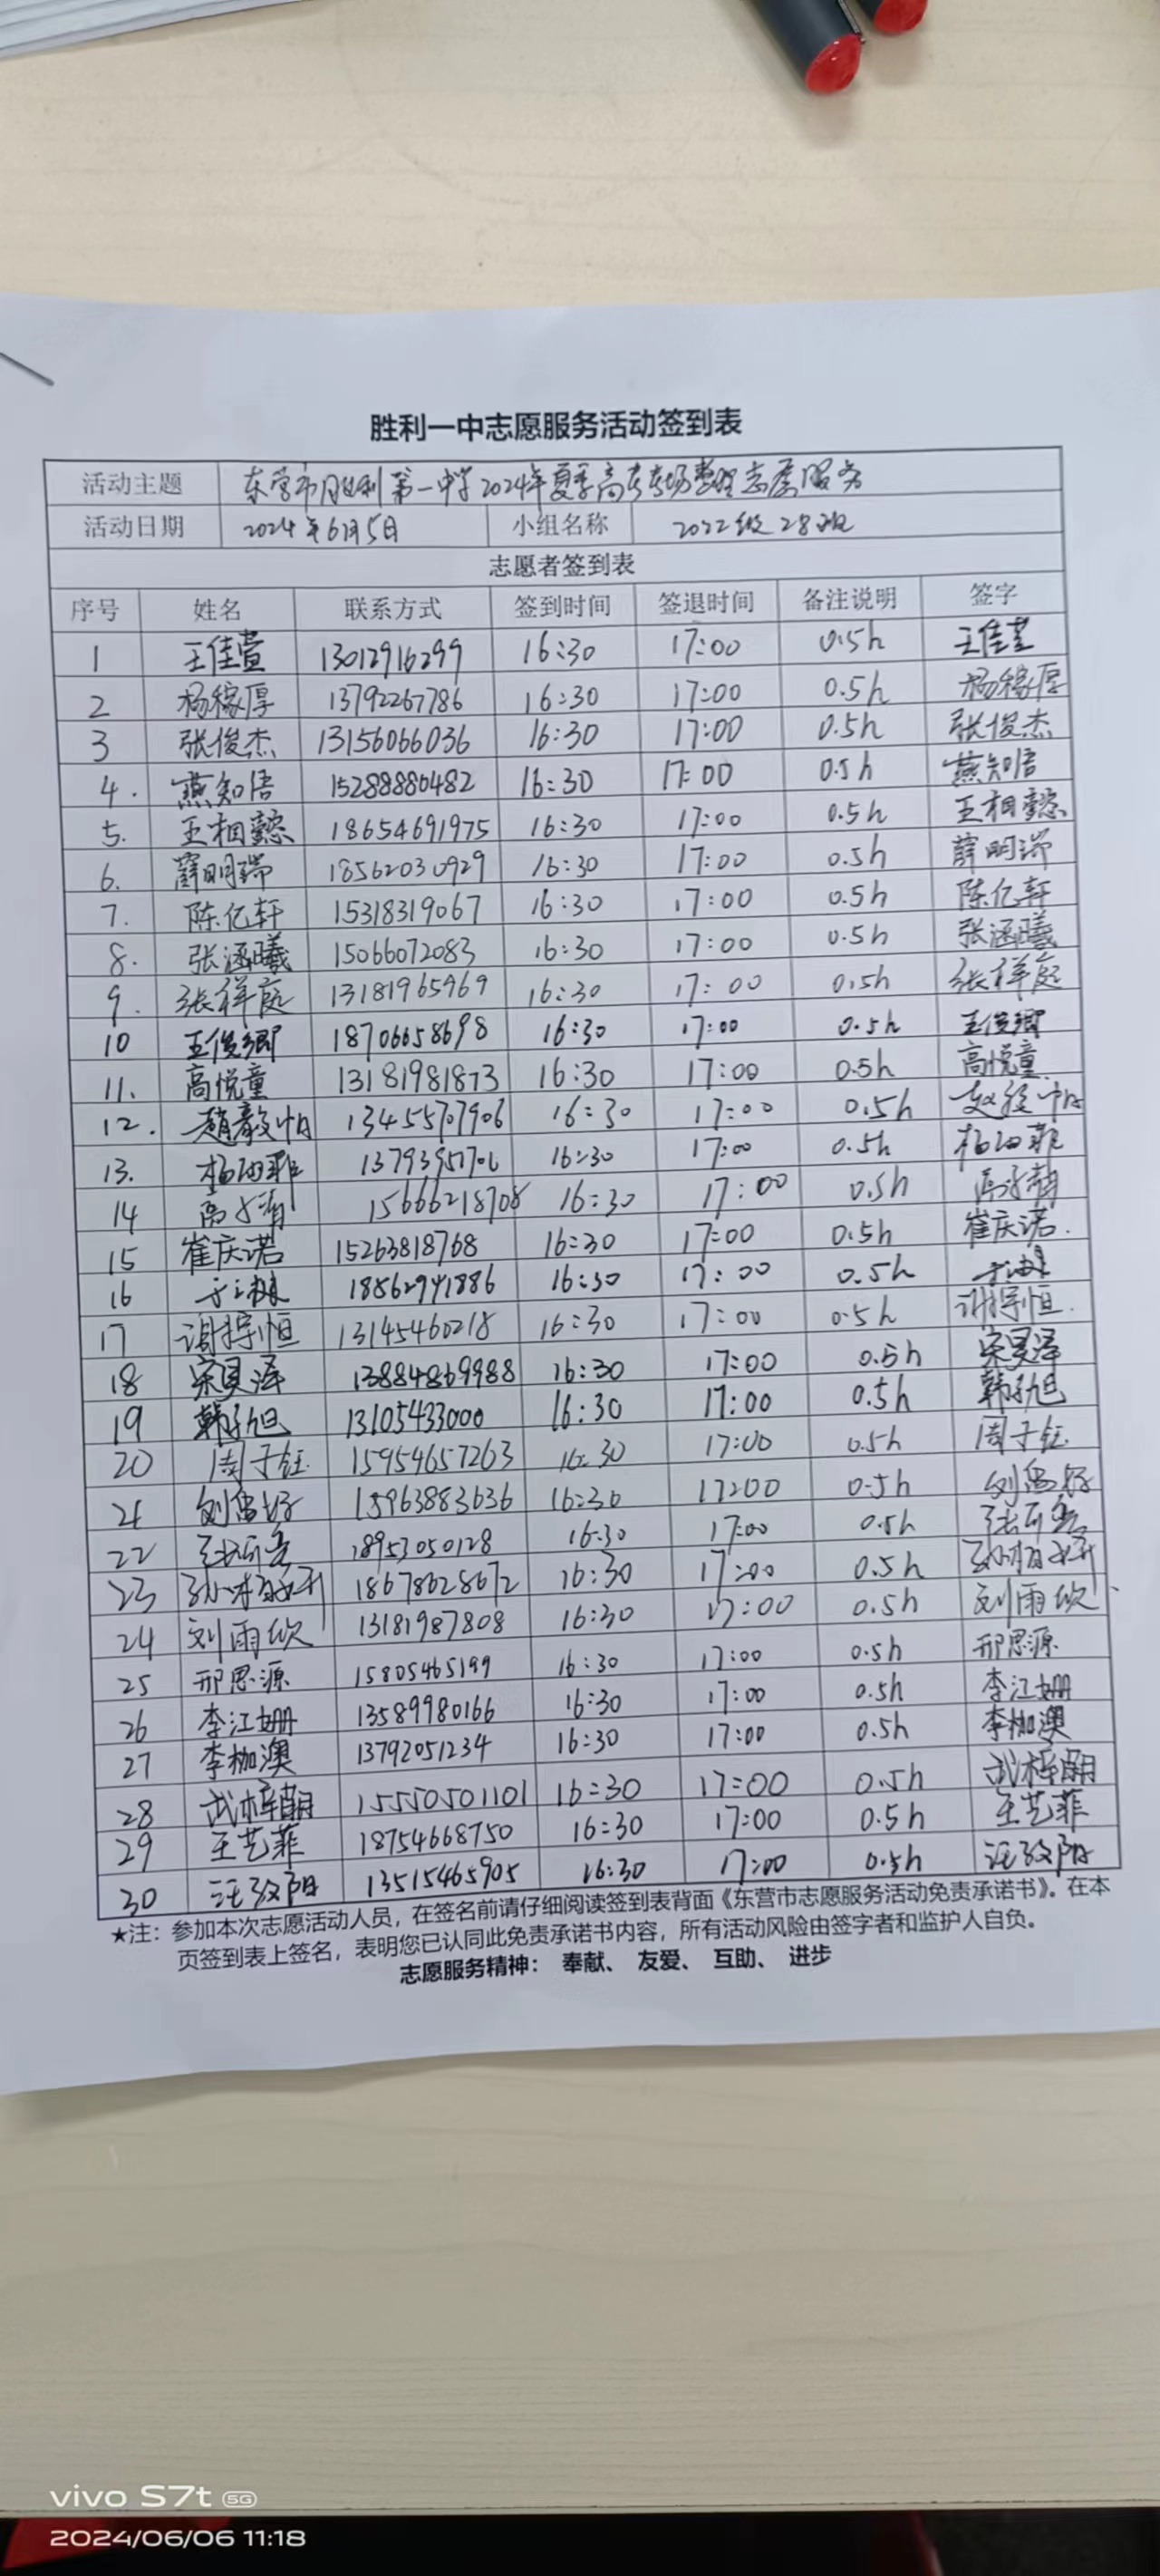 胜利一中志愿服务活动签到表
活动主题 东营市胜利第一中学2024年夏季高考考场整理志愿服务
活动日期 2024年6月5日 小组名称 2022级28班
志愿者签到表
序号 姓名 联系方式 签到时间 签退时间 备注说明 签字
1 王佳萱 13012916299 16:30 17:00 0.5h 王佳萱
2 杨稼厚 13792267786 16:30 17:00 0.5h 杨稼厚
3 张俊杰 13156066036 16:30 17:00 0.5h 张俊杰
4. 燕知语 15288880482 16:30 17:00 0.5h 燕知语
5. 王相懿 18654691975 16:30 17:00 0.5h 王相懿
6. 薛明瑞 18562030929 16:30 17:00 0.5h 薛明瑞
7. 陈亿轩 15318319067 16:30 17:00 0.5h 陈亿轩
8. 张涵曦 15066072083 16:30 17:00 0.5h 张涵曦
9. 张祥庭 13181965969 16:30 17:00 0.5h 张祥庭
10 王俊卿 18706658698 16:30 17:00 0.5h 王俊卿
11. 高悦童 13181981873 16:30 17:00 0.5h 高悦童
12. 13455707906 16:30 17:00 0.5h
13. 16:30 17:00 0.5h
14 15666218708 16:30 17:00 0.5h
15 崔庆诺 15263818768 16:30 17:00 0.5h 崔庆诺.
16 18562941886 16:30 17:00 0.5h
17 13145460218 16:30 17:00 0.5h
18 宋昊泽 13884869988 16:30 17:00 0.5h 宋昊泽
19 韩子旭 13105433000 16:30 17:00 0.5h 韩子旭
20 周子钰 15954657263 16:30 17:00 0.5h 周子钰
21 15963883636 16:30 17:00 0.5h
22 18953050128 16:30 17:00 0.5h
23 18678628672 16:30 17:00 0.5h
24 刘雨欣 13181987808 16:30 17:00 0.5h 刘雨欣
25 邢思源 15805465199 16:30 17:00 0.5h 邢思源
26 李江姗 13589980166 16:30 17:00 0.5h 李江姗
27 李枷澳 13792051234 16:30 17:00 0.5h 李枷澳
28 15550501101 16:30 17:00 0.5h
29 王艺菲 18754668750 16:30 17:00 0.5h 王艺菲
30 13515465905 16:30 17:00 0.5h
★注：参加本次志愿活动人员，在签名前请仔细阅读签到表背面《东营市志愿服务活动免责承诺书》。在本
页签到表上签名，表明您已认同此免责承诺书内容，所有活动风险由签字者和监护人自负。
志愿服务精神： 奉献、 友爱、 互助、 进步
vivo S7t 5G
2024/06/06 11:18